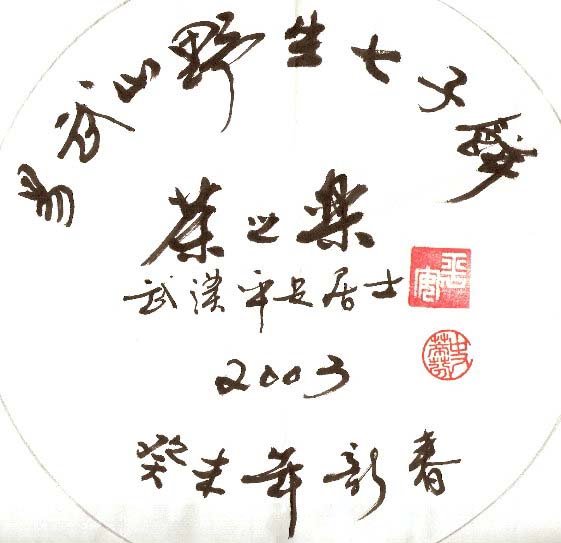 易武山野生七子餅
茶之樂
武漢平安居士
平安
2003
癸未年新春